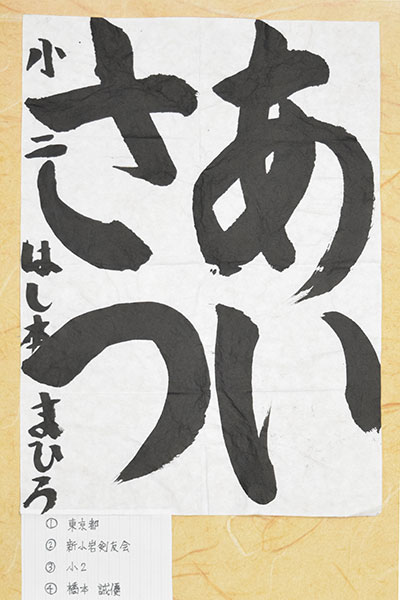 あい
さつ
小二 はし本 まひろ
① 東京都
② 新小岩剣友会
③ 小2
④ 橋本 誠優